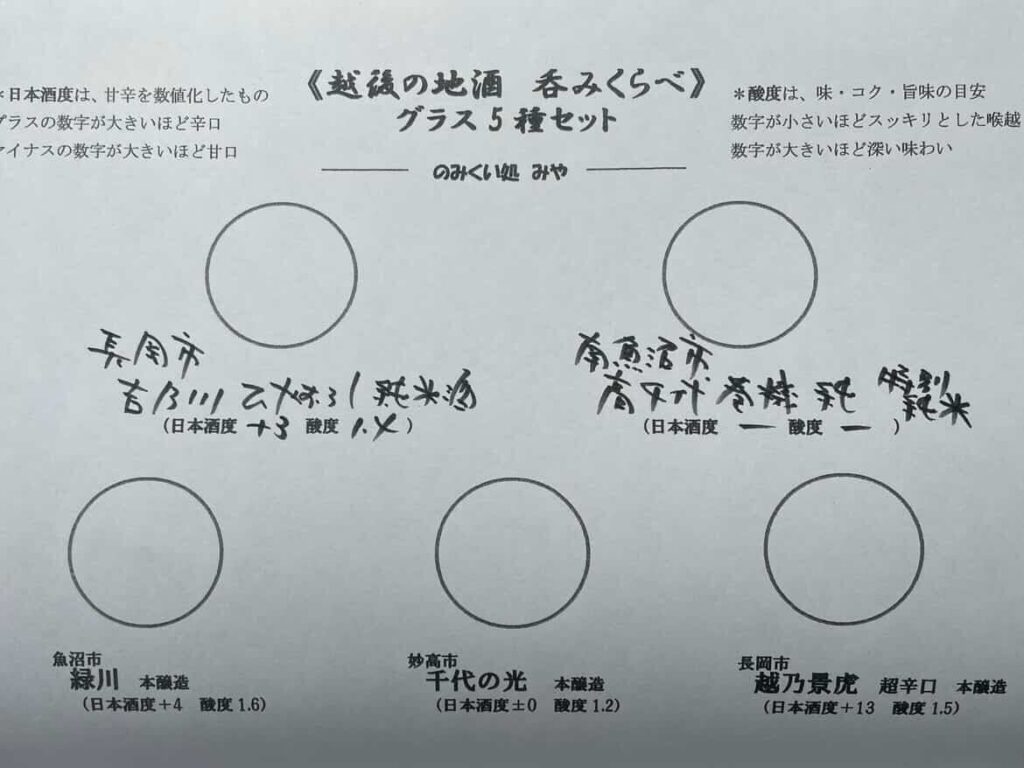 《越後の地酒 呑みくらべ》
グラス5種セット
のみくい処 みや
*日本酒度は、甘辛を数値化したもの
プラスの数字が大きいほど辛口
マイナスの数字が大きいほど甘口
*酸度は、味・コク・旨味の目安
数字が小さいほどスッキリとした喉越
数字が大きいほど深い味わい
長岡市
吉乃川 純米酒
(日本酒度 +3 酸度 1.4 )
南魚沼市
特別
純米
(日本酒度 ー 酸度 ー )
魚沼市
緑川 本醸造
(日本酒度+4 酸度1.6)
妙高市
千代の光 本醸造
(日本酒度±0 酸度1.2)
長岡市
越乃景虎 超辛口 本醸造
(日本酒度+13 酸度1.5)